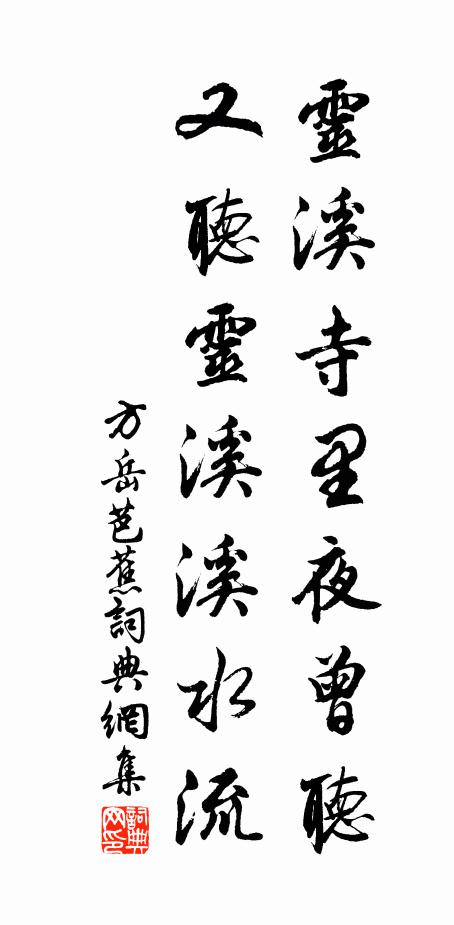 靈溪寺里夜曾聽
又聽靈溪溪水流
方岳芭蕉詞典網集
詞典网印